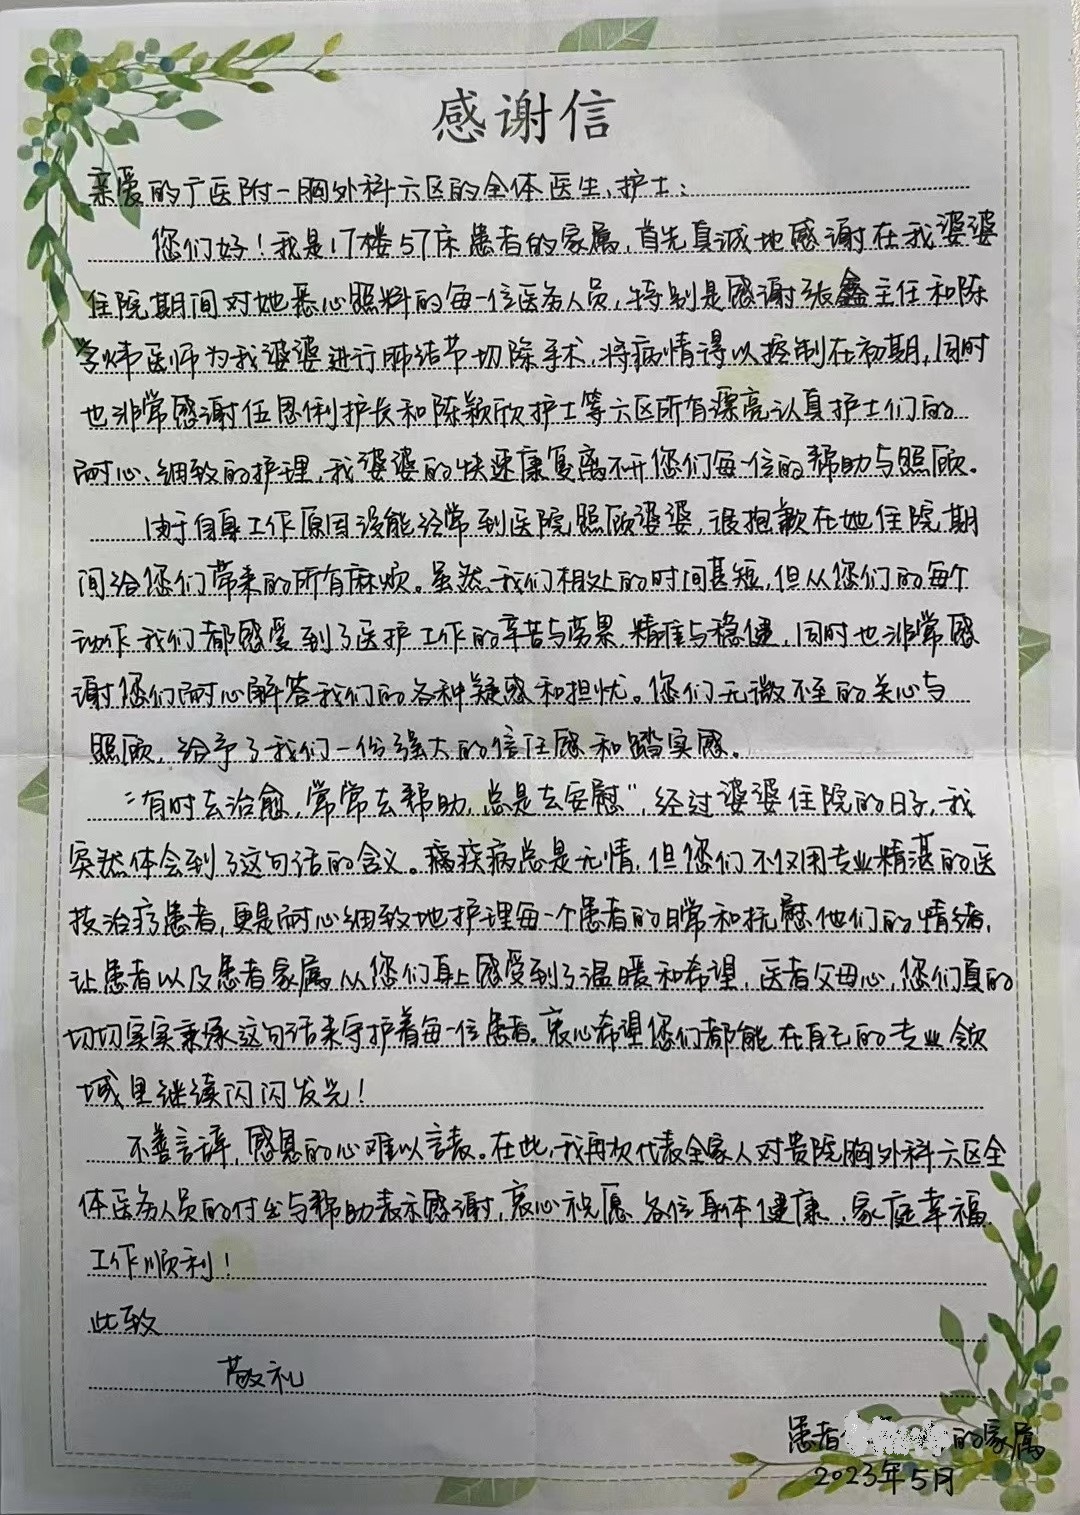 感谢信
亲爱的广医附一胸外科六区的全体医生、护士：
您们好！我是17楼57床患者的家属，首先真诚地感谢在我婆婆
住院期间对她悉心照料的每一位医务人员，特别是感谢张鑫主任和陈
学炜医师为我婆婆进行肺结节切除手术，将病情得以控制在初期，同时
也非常感谢伍恩俐护长和陈颖欣护士等六区所有漂亮认真护士们的
耐心、细致的护理，我婆婆的快速康复离不开您们每一位的帮助与照顾。
由于自身工作原因没能经常到医院照顾婆婆，很抱歉在她住院期
间给您们带来的所有麻烦。虽然我们相处的时间甚短，但从您们的每个
动作我们都感受到了医护工作的辛苦与劳累，精准与稳健，同时也非常感
谢您们耐心解答我们的各种疑惑和担忧。您们无微不至的关心与
照顾，给予了我们一份强大的信任感和踏实感。
“有时去治愈，常常去帮助，总是去安慰”，经过婆婆住院的日子，我
突然体会到了这句话的含义。疾病总是无情，但您们不仅用专业精湛的医
技治疗患者，更是耐心细致地护理每一个患者的日常和抚慰他们的情绪，
让患者以及患者家属从您们身上感受到了温暖和希望，医者父母心，您们真的
切切实实秉承这句话来守护着每一位患者。衷心希望您们都能在自己的专业领
域里继续闪闪发光！
不善言辞，感恩的心难以言表。在此，我再次代表全家人对贵院胸外科六区全
体医务人员的付出与帮助表示感谢，衷心祝愿各位身体健康、家庭幸福、
工作顺利！
此致
敬礼
患者的家属
2023年5月